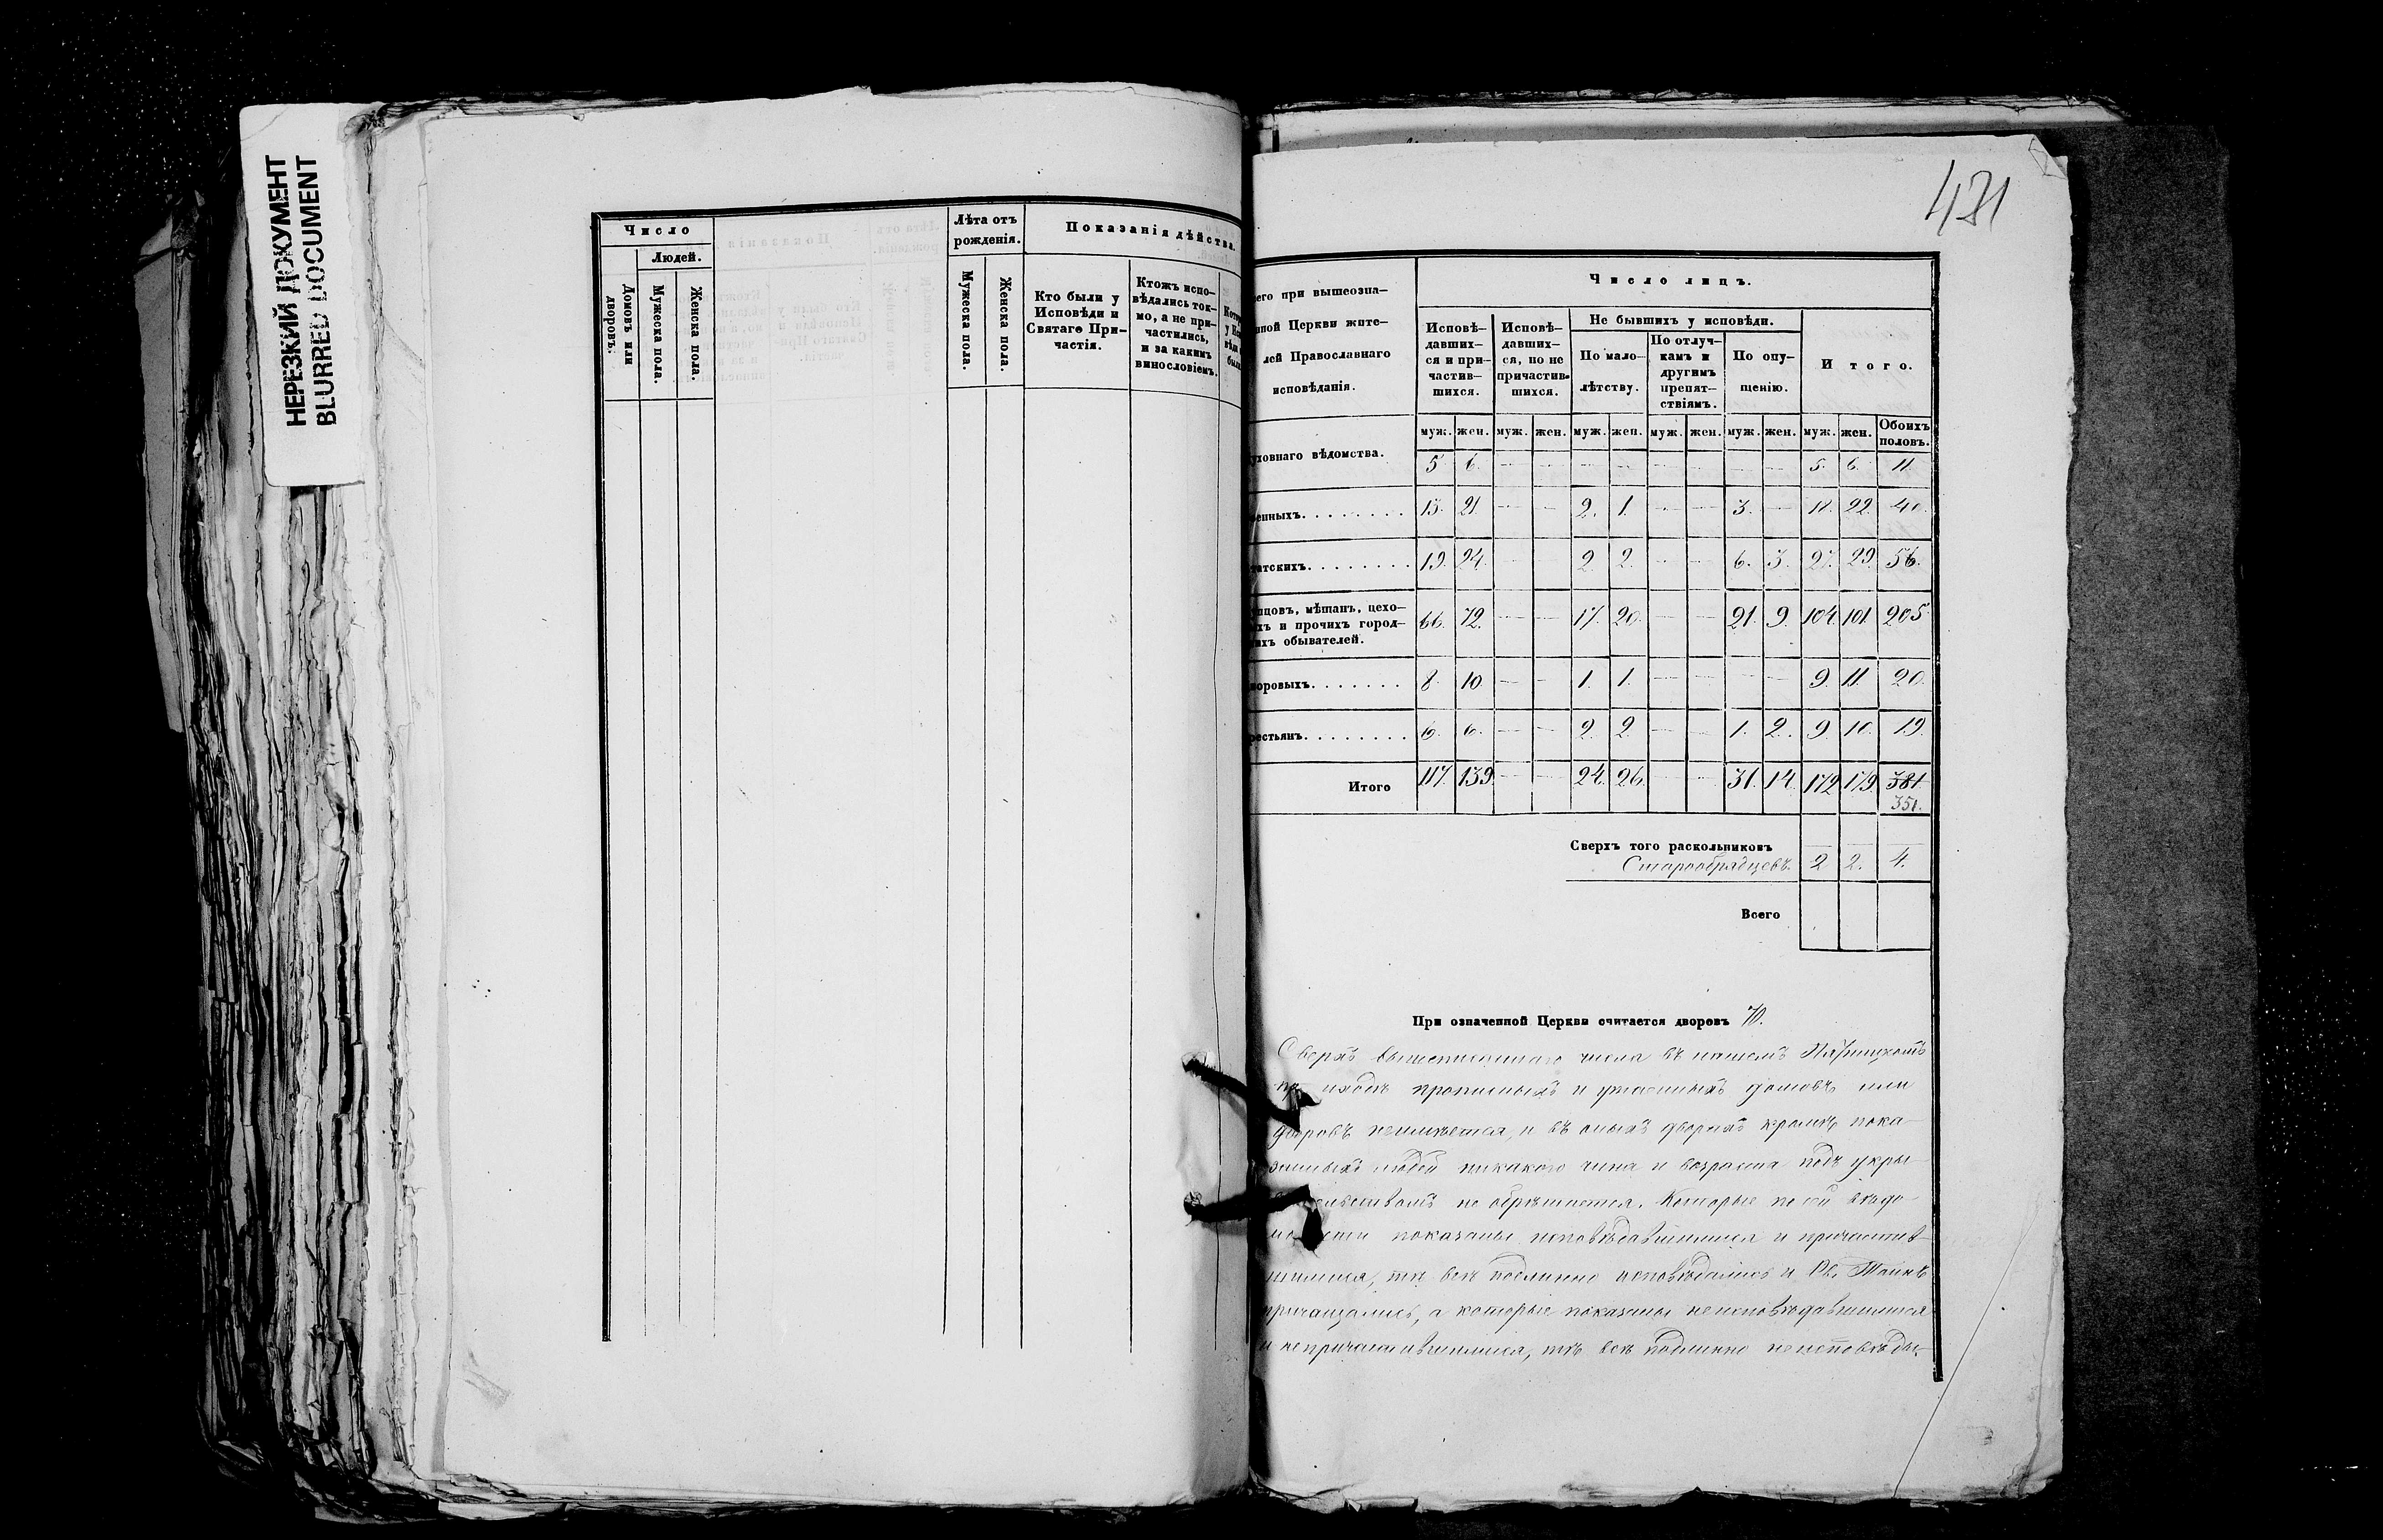 НЕРЕЗКИЙ ДОКУМЕНТ
BLURRED DOCUMENT
Число
Людей.
Домовъ или дворовъ.
Мужеска пола.
Женска пола.
Лѣта отъ рожденія.
Мужеска пола.
Женска пола.
Показанія дѣйства.
Кто были у
Исповѣди и
Святаго При-
частія.
Ктожъ испо-
вѣдались ток-
мо, а не при-
частились,
и за какимъ
винословіемъ.
431
при вышеозна-
Церкви жите-
лей Православнаго
исповѣданія.
Число лицъ.
Исповѣ-
давших-
ся и при-
частив-
шихся.
Исповѣ-
давших-
ся, но не
причастив-
шихся.
Не бывшихъ у исповѣди.
По мало-
лѣтству.
По отлуч-
камъ и
другимъ
препят-
ствіямъ.
По опу-
щенію.
Итого.
муж. жен. муж. жен. муж. жен. муж. жен. муж. жен. муж. жен. Обоихъ половъ.
вѣдомства. 5. 6. — — — — — — — — 5. 6. 11.
13. 21. — — 2. 1. — — 3. — 18. 22. 40.
19. 24. — — 2. 2. — — 6. 3. 27. 29. 56.
мѣщанъ, цехо-
и прочихъ город-
обывателей. 66. 72. — — 17. 20. — — 21. 9. 104. 101. 205.
8. 10. — — 1. 1. — — — — 9. 11. 20.
6. 6. — — 2. 2. — — 1. 2. 9. 10. 19.
Итого 117. 139. — — 24. 26. — — 31. 14. 172. 179. 381.
351.
Сверхъ того раскольниковъ
Старообрядцевъ. 2 2. 4.
Всего
При означенной Церкви считается дворовъ 70.
Сверхъ вышеписаннаго числа въ нашемъ
прописныхъ и утаенныхъ домовъ или
дворовъ неимѣется, и въ оныхъ дворахъ кромѣ пока-
занныхъ людей никакого чина и возраста подъ укры-
не обрѣтается. Которые по сей вѣдо-
показаны исповѣдавшимися и причастив-
шимися, тѣ всѣ подлинно исповѣдались и Св. Таинъ
причащались, а которые показаны неисповѣдавшимися
и непричастившимися, тѣ всѣ подлинно неисповѣды-